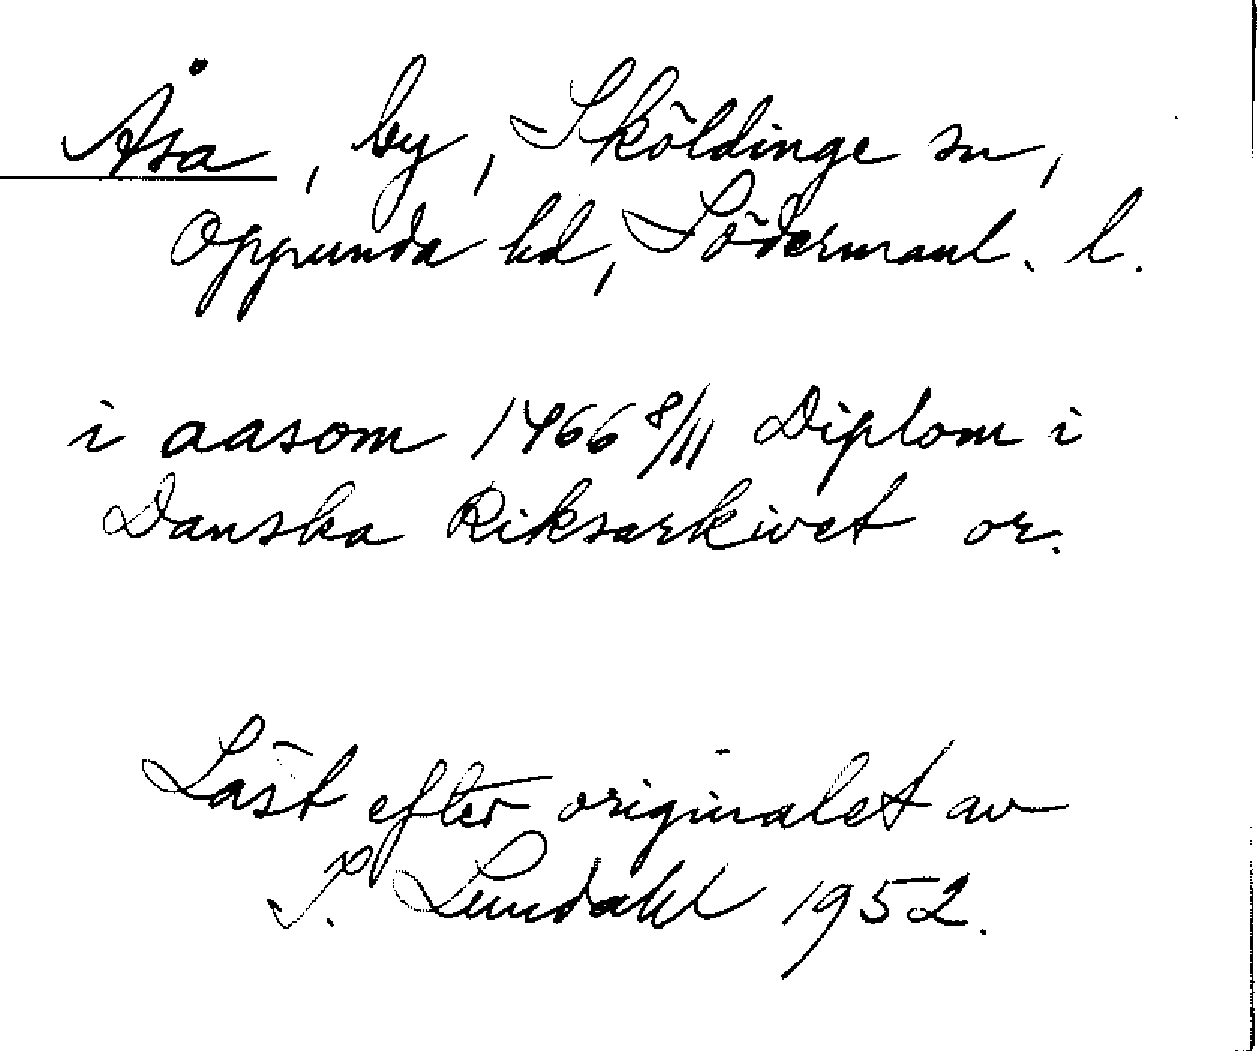 Åsa, by, Sköldinge sn,
Oppunda hd, Södermanl. l.
i aasom 1466 8/11 Diplom i
Danska Riksarkivet or.
Läst efter originalet av
I. Lundahl 1952.